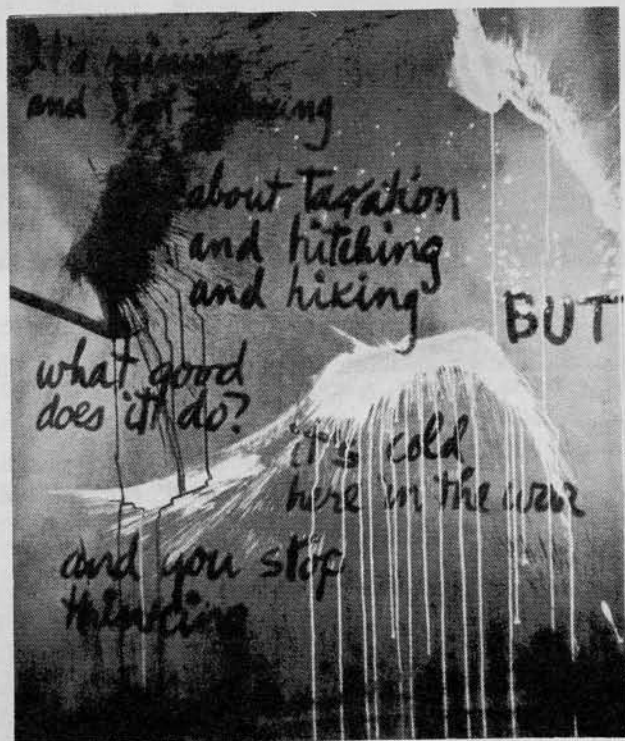 It's raining
and I
about taxation
and hitching
and hiking
BUT
what good
does it do?
it's cold
here in the war
and you stop
thinking